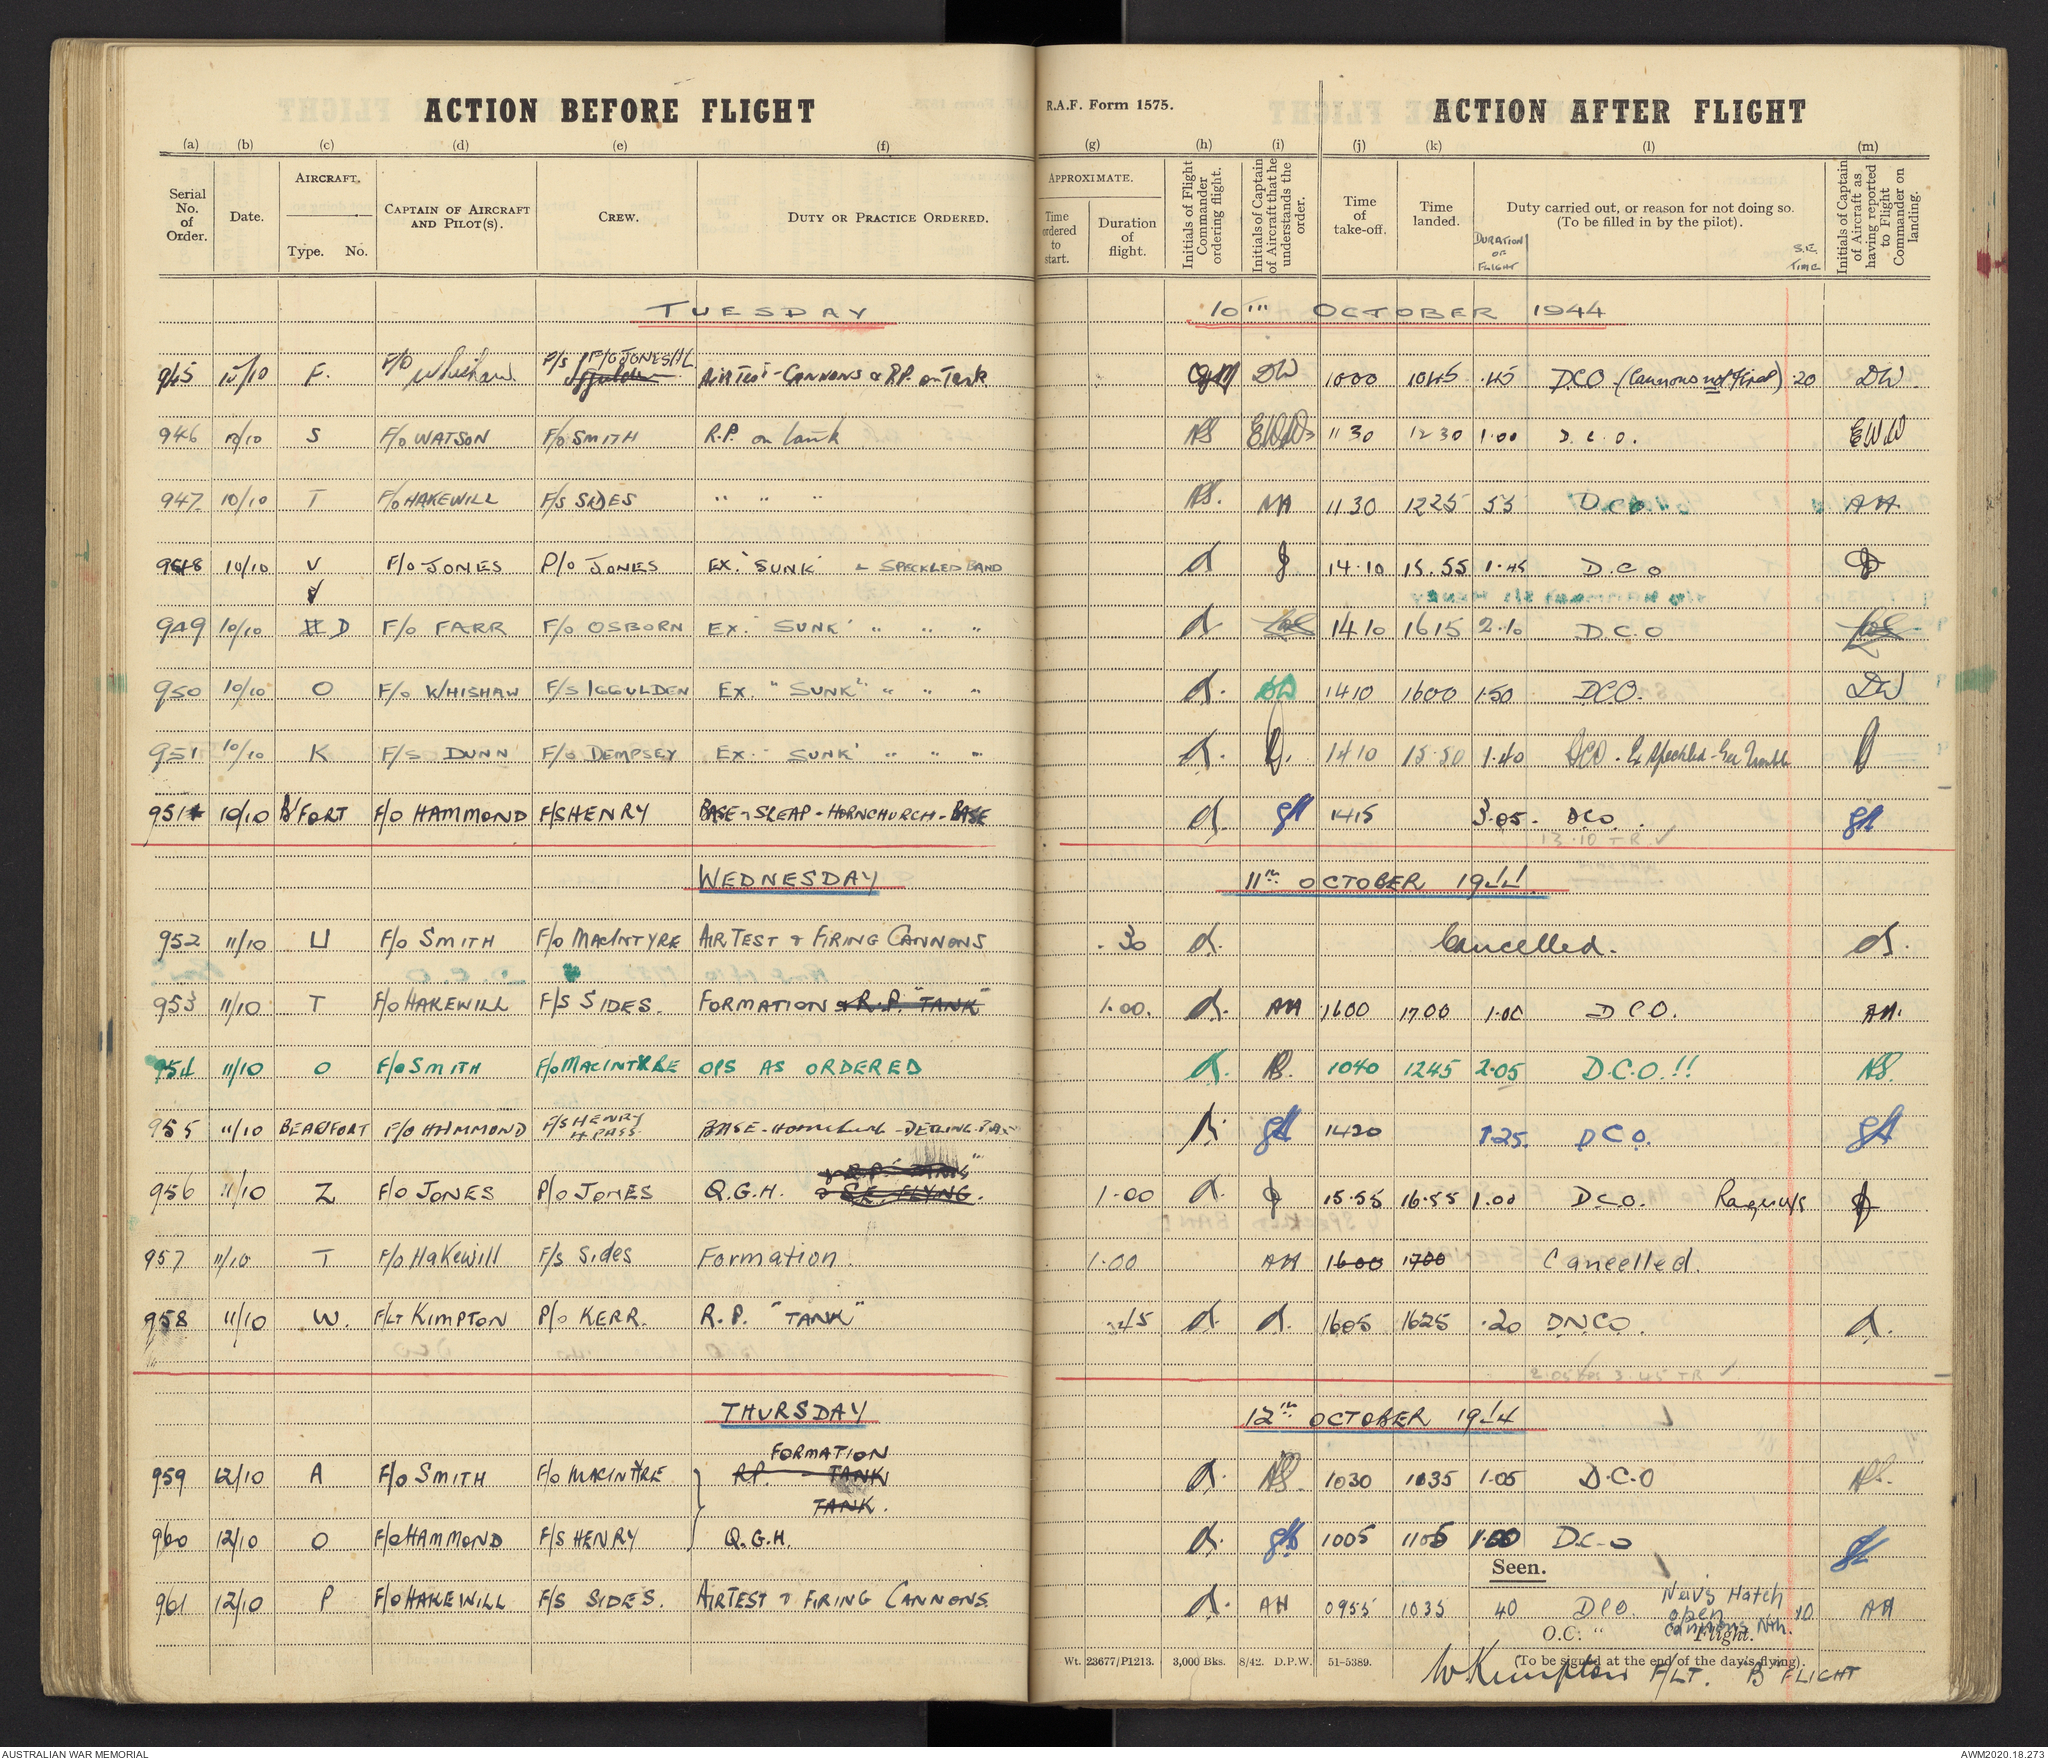 ACTION BEFORE FLIGHT
R.A.F. Form 1575.
ACTION AFTER FLIGHT
(a) (b) (c) (d) (e) (f) (g) (h) (i) (j) (k) (l) (m)
Serial No. of Order. Date. AIRCRAFT. Type. No. CAPTAIN OF AIRCRAFT AND PILOT(S). CREW. DUTY OR PRACTICE ORDERED. APPROXIMATE. Time ordered to start. Duration of flight. Initials of Flight Commander ordering flight. Initials of Captain of Aircraft that he understands the order. Time of take-off. Time landed. Duty carried out, or reason for not doing so. (To be filled in by the pilot). Initials of Captain of Aircraft as having reported to Flight Commander on landing.
DURATION OF FLIGHT S.E. TIME
TUESDAY 10TH OCTOBER 1944
945 10/10 F. F/O Whishaw P/S F/O JONES HL AIRTEST - CANNONS & RP. on Tank DW 1000 1045 .45 DCO (Cannons not fired) .20 DW
946 10/10 S F/O WATSON F/O SMITH R.P. on tank NS EWW 1130 1230 1.00 D.C.O. EWW
947 10/10 T F/O HAKEWILL F/S SIDES " " " NS. AH 1130 1225 55 D.C.O. AH
948 10/10 V F/O JONES P/O JONES EX. 'SUNK' & SPECKLED BAND d J 14.10 15.55 1.45 D.C.O J
949 10/10 D F/O FARR F/O OSBORN EX. 'SUNK' " " " d 1410 1615 2.10 D.C.O
950 10/10 O F/O WHISHAW F/S IGGULDEN EX. "SUNK" " " " d. DW 1410 1600 1.50 DCO. DW
951 10/10 K F/S DUNN F/O DEMPSEY EX. 'SUNK' " " " d. D. 1410 15.50 1.40 DCO. Ex Speckled - Gee Trouble D
951* 10/10 B'FORT F/O HAMMOND F/S HENRY BASE - SLEAP - HORNCHURCH - BASE d. GH 1415 3.05. DCO. GH
13.10 TR ✓
WEDNESDAY 11TH OCTOBER 1944
952 11/10 U F/O SMITH F/O MACINTYRE AIR TEST & FIRING CANNONS .30 d. Cancelled. d.
953 11/10 T F/O HAKEWILL F/S SIDES. FORMATION & R.P. "TANK" 1.00. d. AH 1600 1700 1.00 DCO. AH.
954 11/10 O F/O SMITH F/O MACINTYRE OPS AS ORDERED d. NS. 1040 1245 2.05 D.C.O.!! NS.
955 11/10 BEAUFORT F/O HAMMOND F/S HENRY 4 PASS. BASE - Hornchurch - DETLING - BASE d. GH 1420 1.25. DCO. GH
956 11/10 Z F/O JONES P/O JONES Q.G.H. & R.P. "TANK" & S.E. FLYING. 1.00 d. J 15.55 16.55 1.00 DCO. J
957 11/10 T F/O Hakewill F/S Sides Formation. 1.00 AH 1600 1700 Cancelled.
958 11/10 W. F/LT KIMPTON P/O KERR. R.P. "TANK" .45 d. d. 1605 1625 .20 DNCO. d.
3.45 TR ✓
THURSDAY 12TH OCTOBER 1944
FORMATION
959 12/10 A F/O SMITH F/O MACINTYRE RP. TANK d. NS. 1030 1035 1.05 D.C.O NS.
TANK.
960 12/10 O F/O HAMMOND F/S HENRY Q.G.H. d. GH 1005 1105 1.00 D.C.O GH
Seen.
961 12/10 P F/O HAKEWILL F/S SIDES. AIRTEST & FIRING CANNONS. d. AH 0955 1035 40 DCO. Nav's Hatch open .10 AH
O.C. " Flight.
Wt. 23677/P1213. 3,000 Bks. 8/42. D.P.W. 51-5389. (To be signed at the end of the day's flying).
WKimpton F/LT. "B" FLIGHT
AUSTRALIAN WAR MEMORIAL
AWM2020.18.273